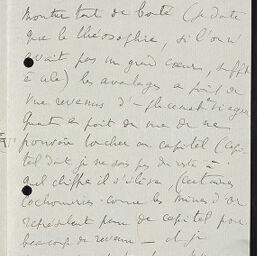 montre tant de bonté (je doute
que la théosophie, si l'on n'
avait pas un grand cœur, suffit
à cela) les avantages a point de
vue revenus d'
quant a point de vue de ne
pouvoir toucher au capital (capi-
tal dont je ne sais pas du reste à
quel chiffre il s'élève, (certaines
cochonneries comme les mines d'or
représentent peu de capital pour
beaucoup de revenu — et je